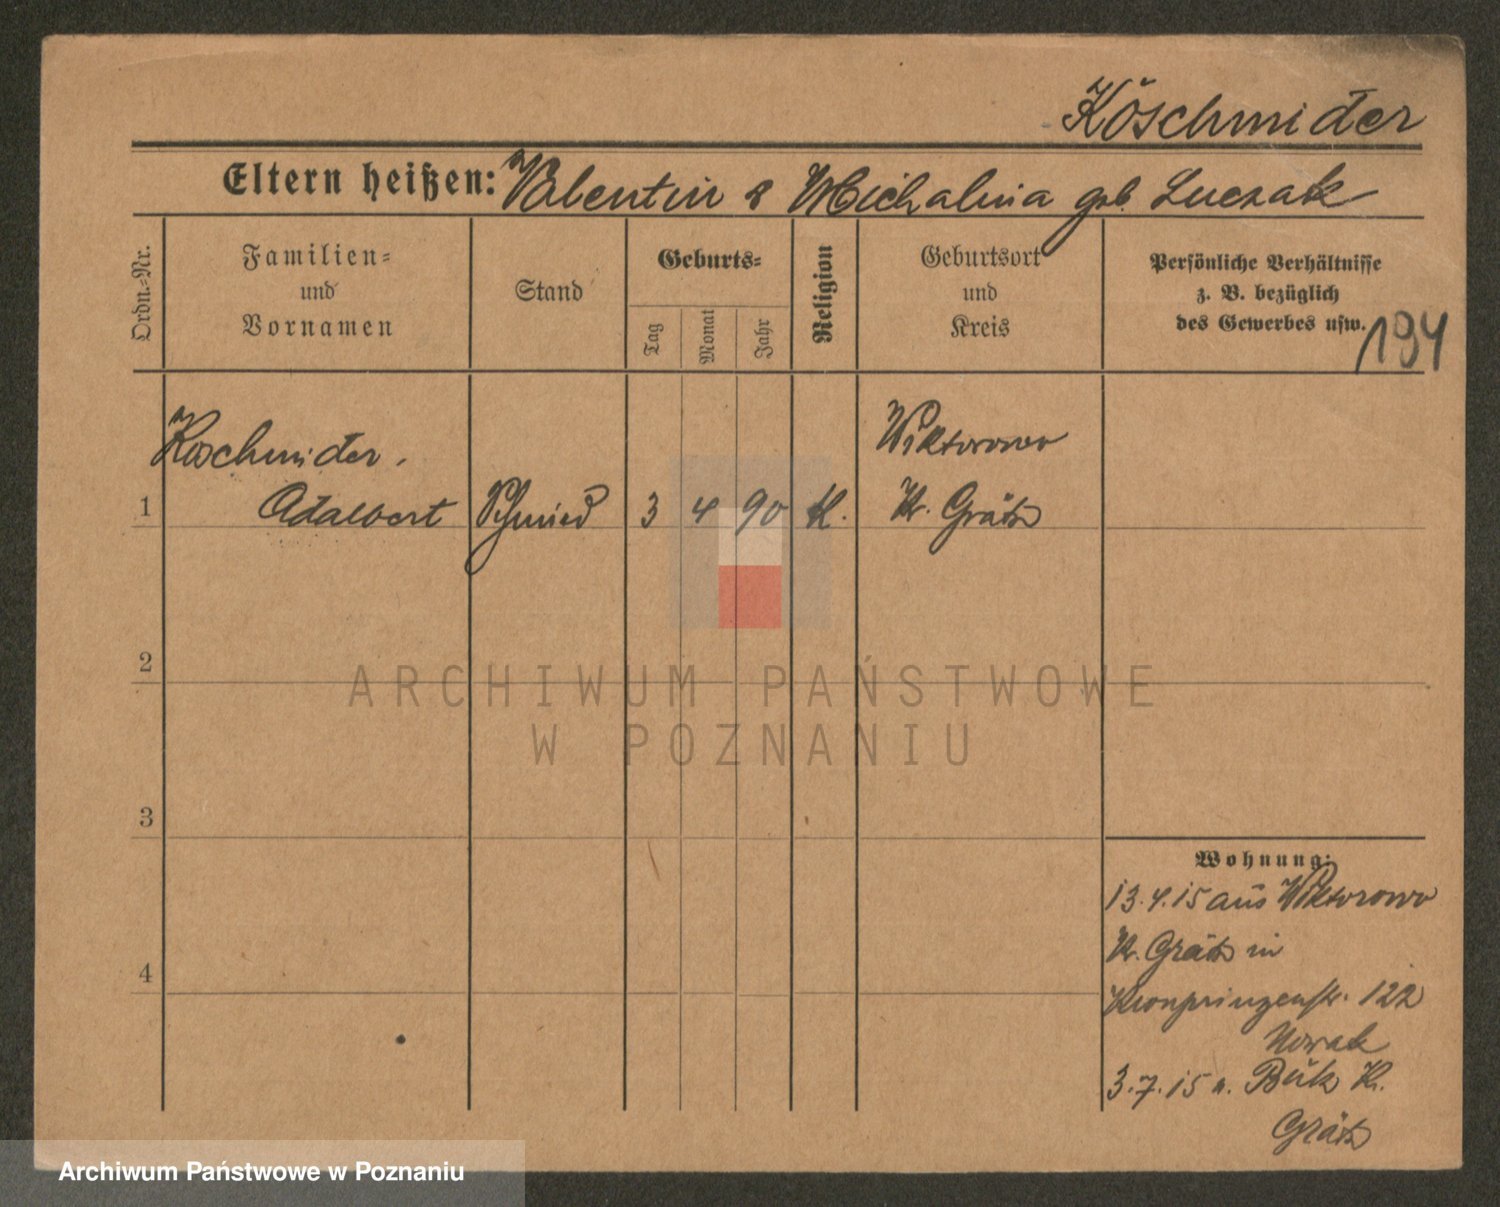 Köschmider
Eltern heißen: Valentin & Michalina geb. Luczak
Ordn.-Nr.
Familien-
und
Vornamen
Stand
Geburts-
Tag
Monat
Jahr
Religion
Geburtsort
und
Kreis
Persönliche Verhältnisse
z. B. bezüglich
des Gewerbes usw.
194
Koschmider,
1 Adalbert Schmied 3 4 90 k.
Wiktorowo
Kr. Grätz
2
3
4
Wohnung:
13.4.15 aus Wiktorowo
Kr. Grätz in
Kronprinzenstr. 122
Nowak
3.7.15 n. Buk Kr.
Grätz
ARCHIWUM PAŃSTWOWE
W POZNANIU
Archiwum Państwowe w Poznaniu